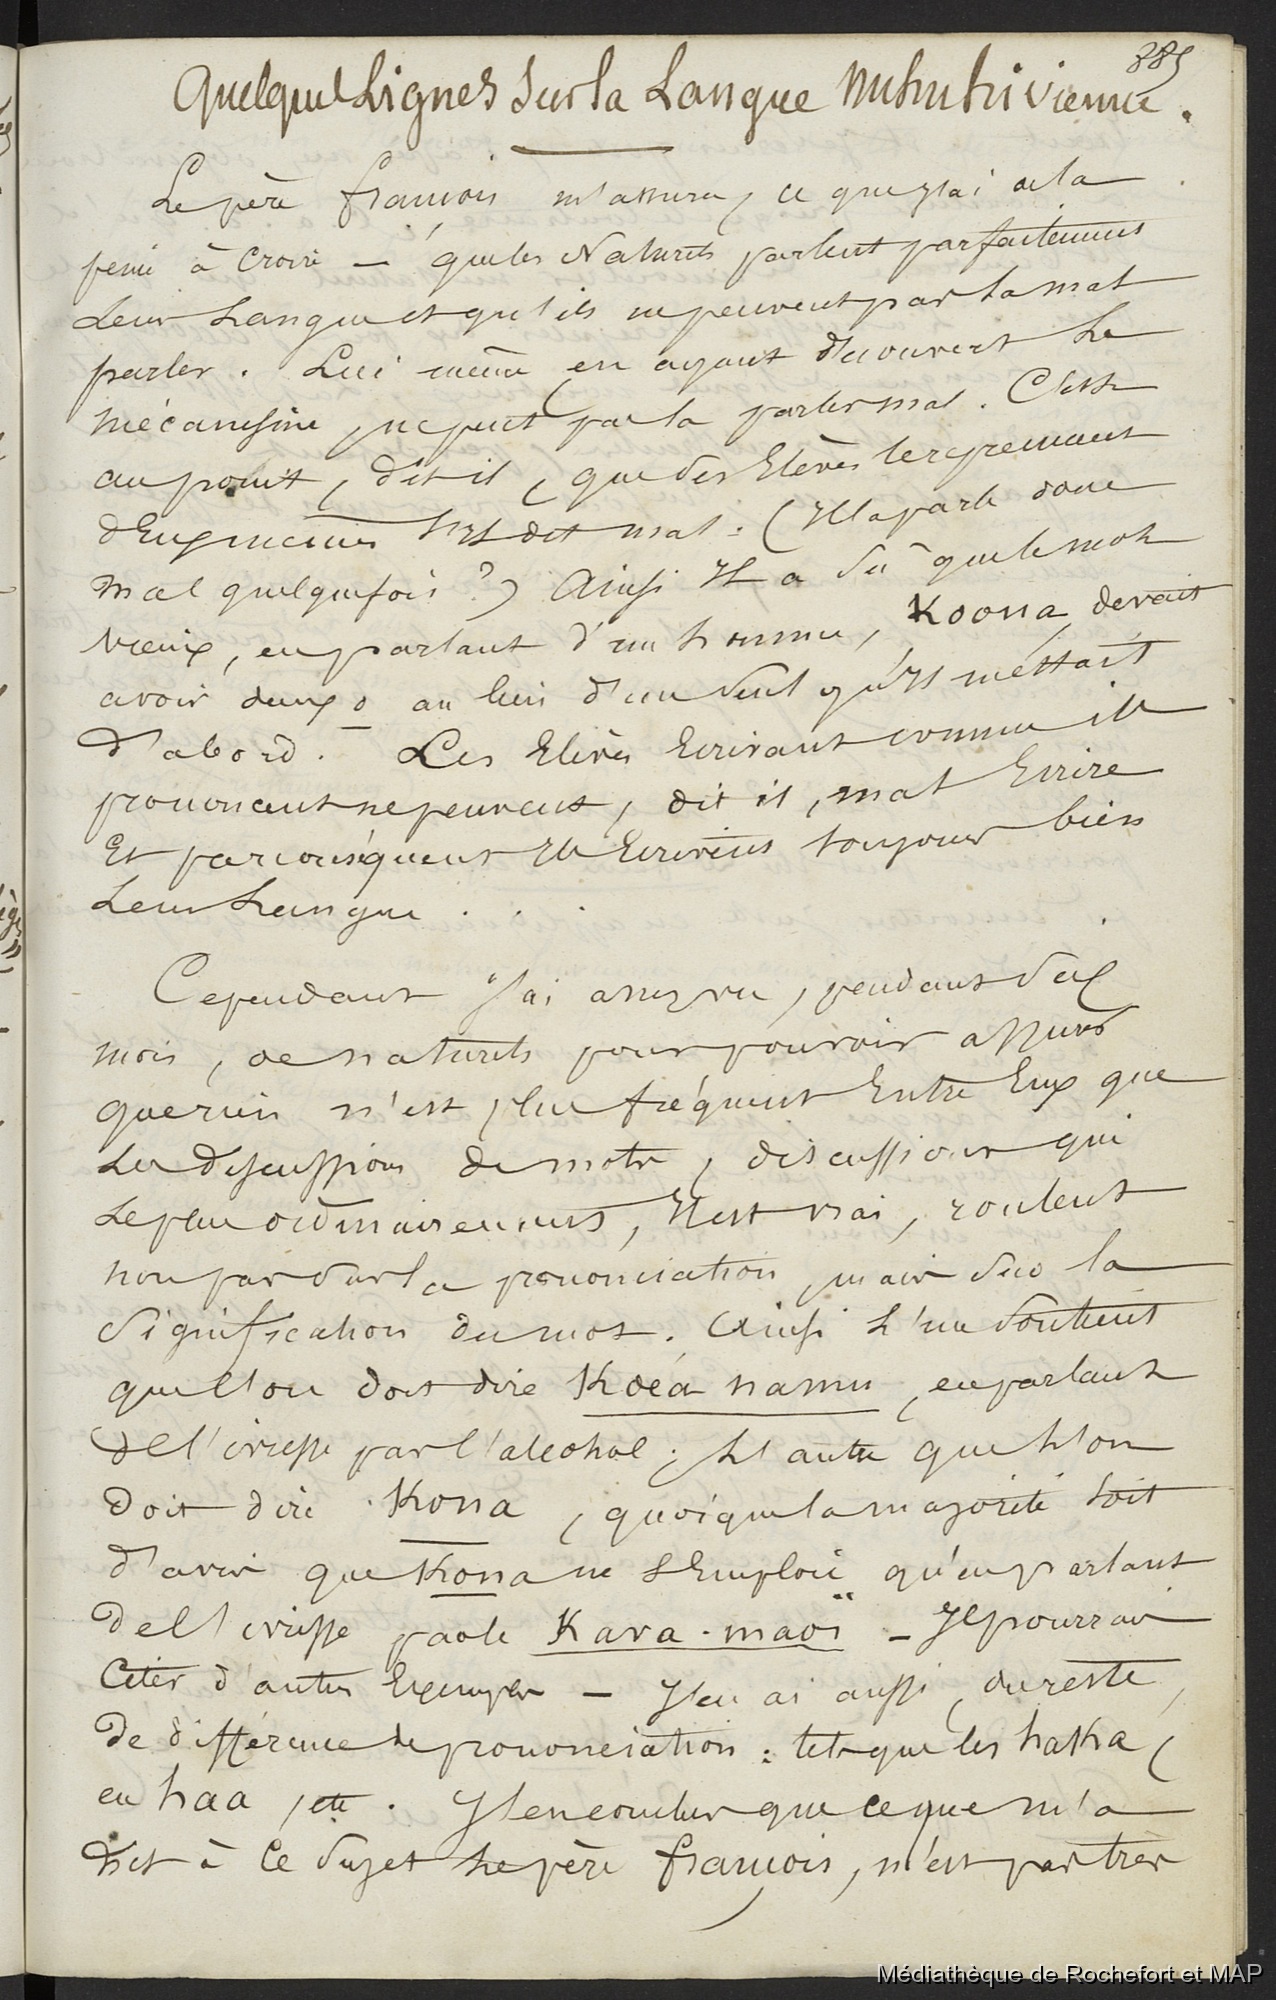 385
Quelques Lignes sur la Langue Nuhuhivienne.
Le père françois m'assure, ce que j'ai de la
peine à croire — que les Naturels parlent parfaitement
Leur Langue et qu'ils ne peuvent pas la mal
parler. Lui même en ayant découvert Le
mécanisme, ne peut pas la parler mal. C'est
au point, dit il, que des Elèves le reprennent
d'Eux mêmes s'Il dit mal : (Il la parle donc
mal quelquefois ?) Ainsi Il a su que le mot
vieux, en parlant d'un homme, Koova, devait
avoir deux o au lieu d'un seul qu'Il mettait
D'abord. Les Elèves Ecrivant comme ils
prononcent ne peuvent, dit il, mal Ecrire
Et par conséquent Ils Ecrivent toujours bien
Leur Langue . . .
Cependant J'ai assez vu, pendant six
mois, de naturels pour pouvoir assurer
que rien n'est plus fréquent Entre Eux que
Les discussions de mots, discussions qui
Le plus ordinairement, Il est vrai, roulent
non pas sur la prononciation, mais sur la
Signification du mot. Ainsi L'un Soutient
que l'on doit dire Koéa namu, en parlant
de l'ivresse par l'alcohol ; L'autre que L'on
Doit dire Kona, quoique la majorité soit
d'avis que Kona ne s'Emploie qu'en parlant
de l'ivresse par le Kava-maoï — Je pourrais
Citer d'autres Exemples — J'en ai aussi, du reste,
De différence de prononciation : tels que les haka,
en haa, etc. J'en conclus que ce que m'a
dit à Ce Sujet Le père françois, n'est pas très
Médiathèque de Rochefort et MAP